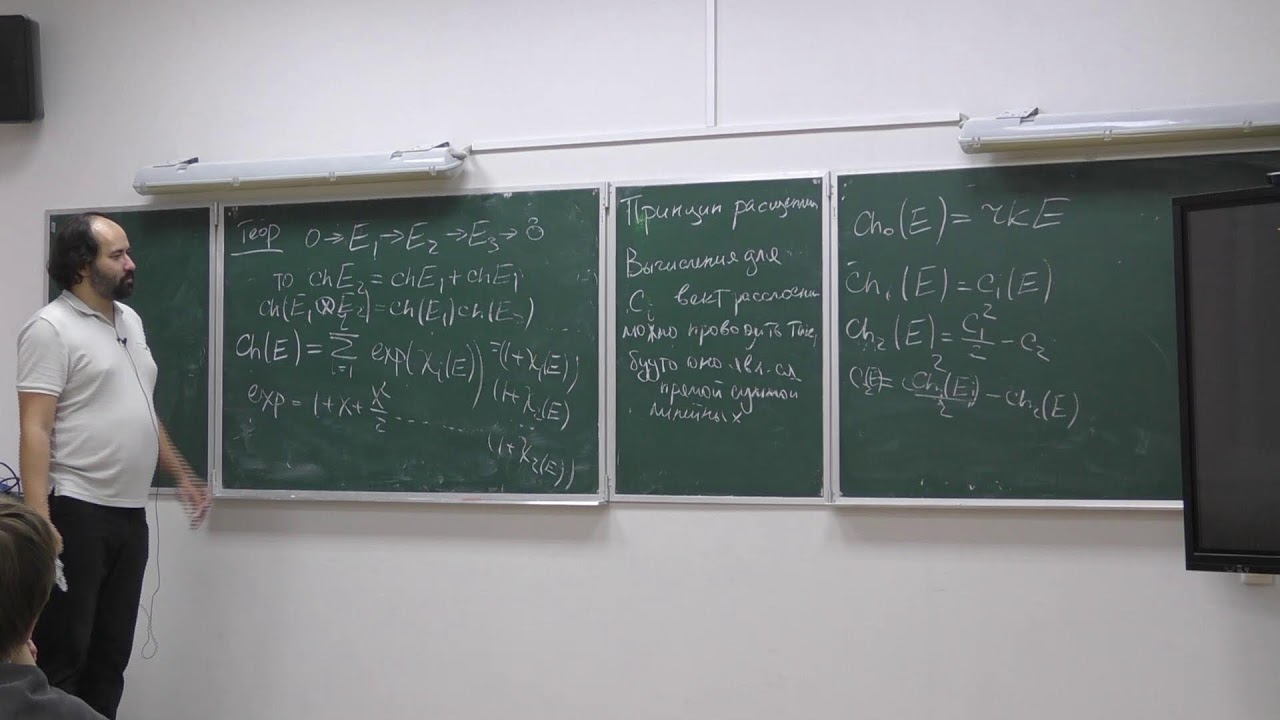 Теор 0→E₁→E₂→E₃→0
то chE₂=chE₁+chE₁
ch(E₁⊗E₂)=ch(E₁)ch(E₂)
Ch(E)=∑ᵢ₌₁ʳ exp(xᵢ(E)) =(1+x₁(E))
(1+x₂(E)
exp=1+x+x²/2.......
(1+xᵣ(E))
Принцип расщепл
Вычисления для
Cᵢ вект расслоени
можно проводить так,
будто оно явл.ся
прямой суммой
линейных
Ch₀(E)=rkE
Ch₁(E)=C₁(E)
Ch₂(E)=C₁²/2-C₂
C₂(E)=Ch₁²(E)/2-Ch₂(E)